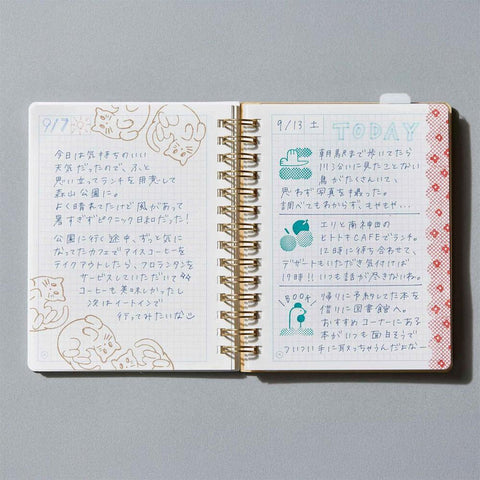 9/7
今日は気持ちのいい
天気だったので、ふと
思い立ってランチを用意して
森山公園に。
よく晴れてたけど風があって
暑すぎずピクニック日和だった!
公園に行く途中、ずっと気に
なってたカフェでアイスコーヒーを
テイクアウトしたら、フロランタンを
サービスしていただいて
コーヒーも美味しかったし
次はイートインで
行ってみたいな
9/13 土
TODAY
朝駅まで歩いてたら
川沿いに見たことない
鳥がたくさんいて、
思わず写真を撮った。
調べてもわからず、もせもせ…
エリと南神田の
ヒトトキCAFEでランチ。
12時に待ち合わせて、
デザートもいただき気付けば
17時!! いつも話が尽きないね。
BOOK!
帰りに予約してた本を
借りに図書館へ。
おすすめコーナーにある
本がいつも面白そうで
ついつい手に取っちゃうんだよなー